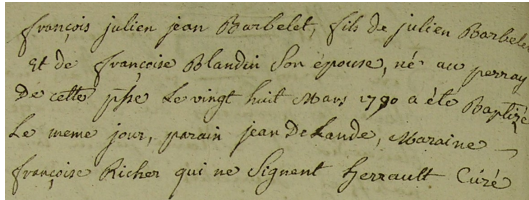 françois julien jean Barbelet, fils de julien Barbelet
Et de françoise Blandin Son épouse, né au perray
De cette psse Le vingt huit Mars 1790 a été Baptizé
Le meme jour, parain jean DeLande, Maraine
françoise Richer qui ne Signent herrault Curé